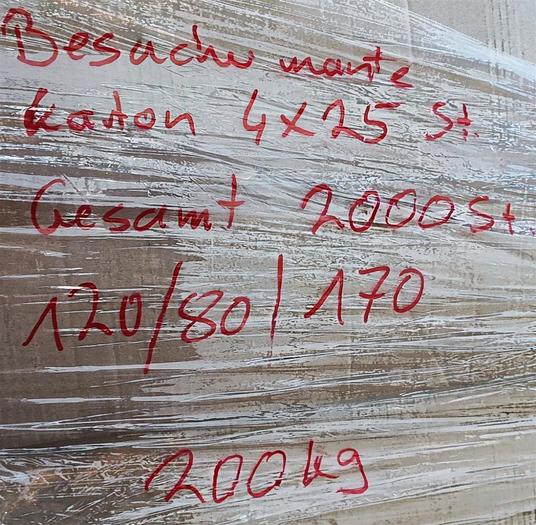 Besuchermante
Karton 4x25 St.
Gesamt 2000 St.
120/80/170
200kg